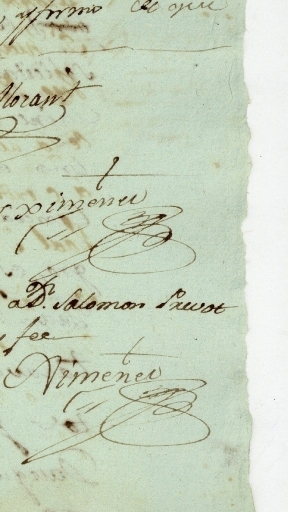 yfirmo de que
Morant
Ximenez
a Dn. Salomon Prevot
fee
Ximenez